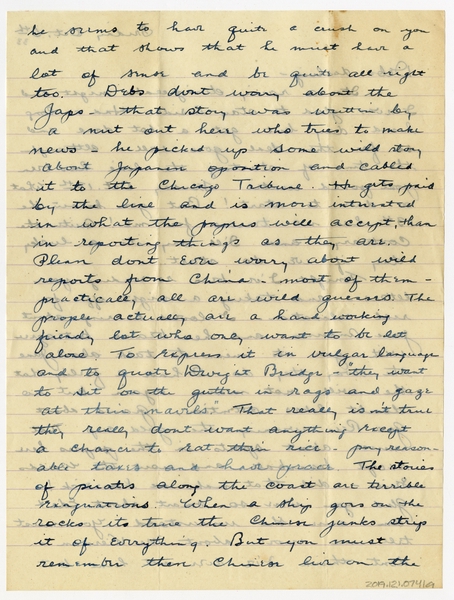 he seems to have quite a crush on you
and that shows that he must have a
lot of sense and be quite all right
too. Debs dont worry about the
Japs - that story was written by
a nut out here who tries to make
news he picked up some wild story
about Japanese oposition and cabled
it to the Chicago Tribune. He gets paid
by the line and is more intrested
in what the papers will accept, than
in reporting things as they are.
Please dont ever worry about wild
reports from China - most of them -
practically all are wild guesses. The
people actually are a hard working
friendly lot who only want to be let
alone. To express it in vulgar language
and to quote Dwight Bridge - "they want
to sit on the gutter in rags and gaze
at their navels" That really isn't true
they really dont want anything except
a chance to eat their rice - pay reason-
able taxes and have peace. The stories
of pirates along the coast are terrible
exagurations. When a ship goes on the
rocks its true the Chinese junks strip
it of everything. But you must
remember these Chinese live on the
2019.121.074/a